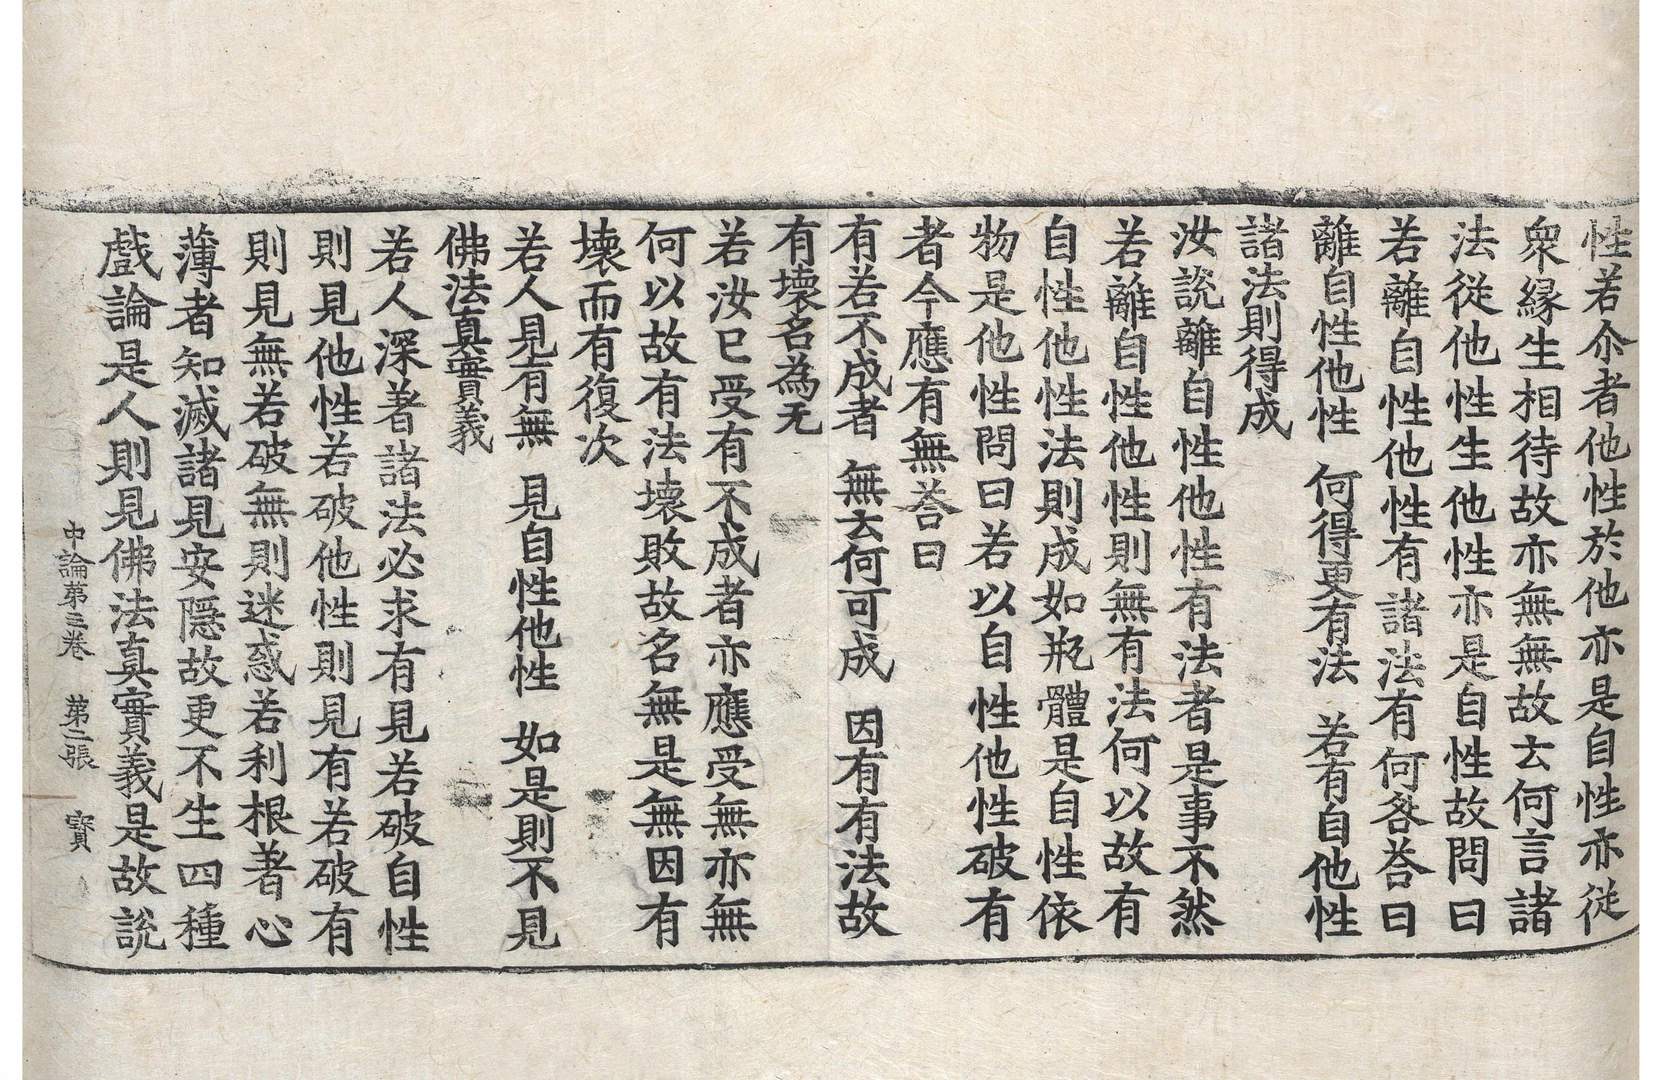 性若尒者他性於他亦是自性亦從
衆緣生相待故亦無無故云何言諸
法從他性生他性亦是自性故問曰
若離自性他性有諸法有何咎荅曰
離自性他性　何得更有法　若有自他性
諸法則得成
汝說離自性他性有法者是事不然
若離自性他性則無有法何以故有
自性他性法則成如瓶體是自性依
物是他性問曰若以自性他性破有
者今應有無荅曰
有若不成者　無云何可成　因有有法故
有壞名為无
若汝已受有不成者亦應受無亦無
何以故有法壞敗故名無是無因有
壞而有復次
若人見有無　見自性他性　如是則不見
佛法真實義
若人深著諸法必求有見若破自性
則見他性若破他性則見有若破有
則見無若破無則迷惑若利根著心
薄者知滅諸見安隱故更不生四種
戲論是人則見佛法真實義是故說
中論第三卷　第二張　寶